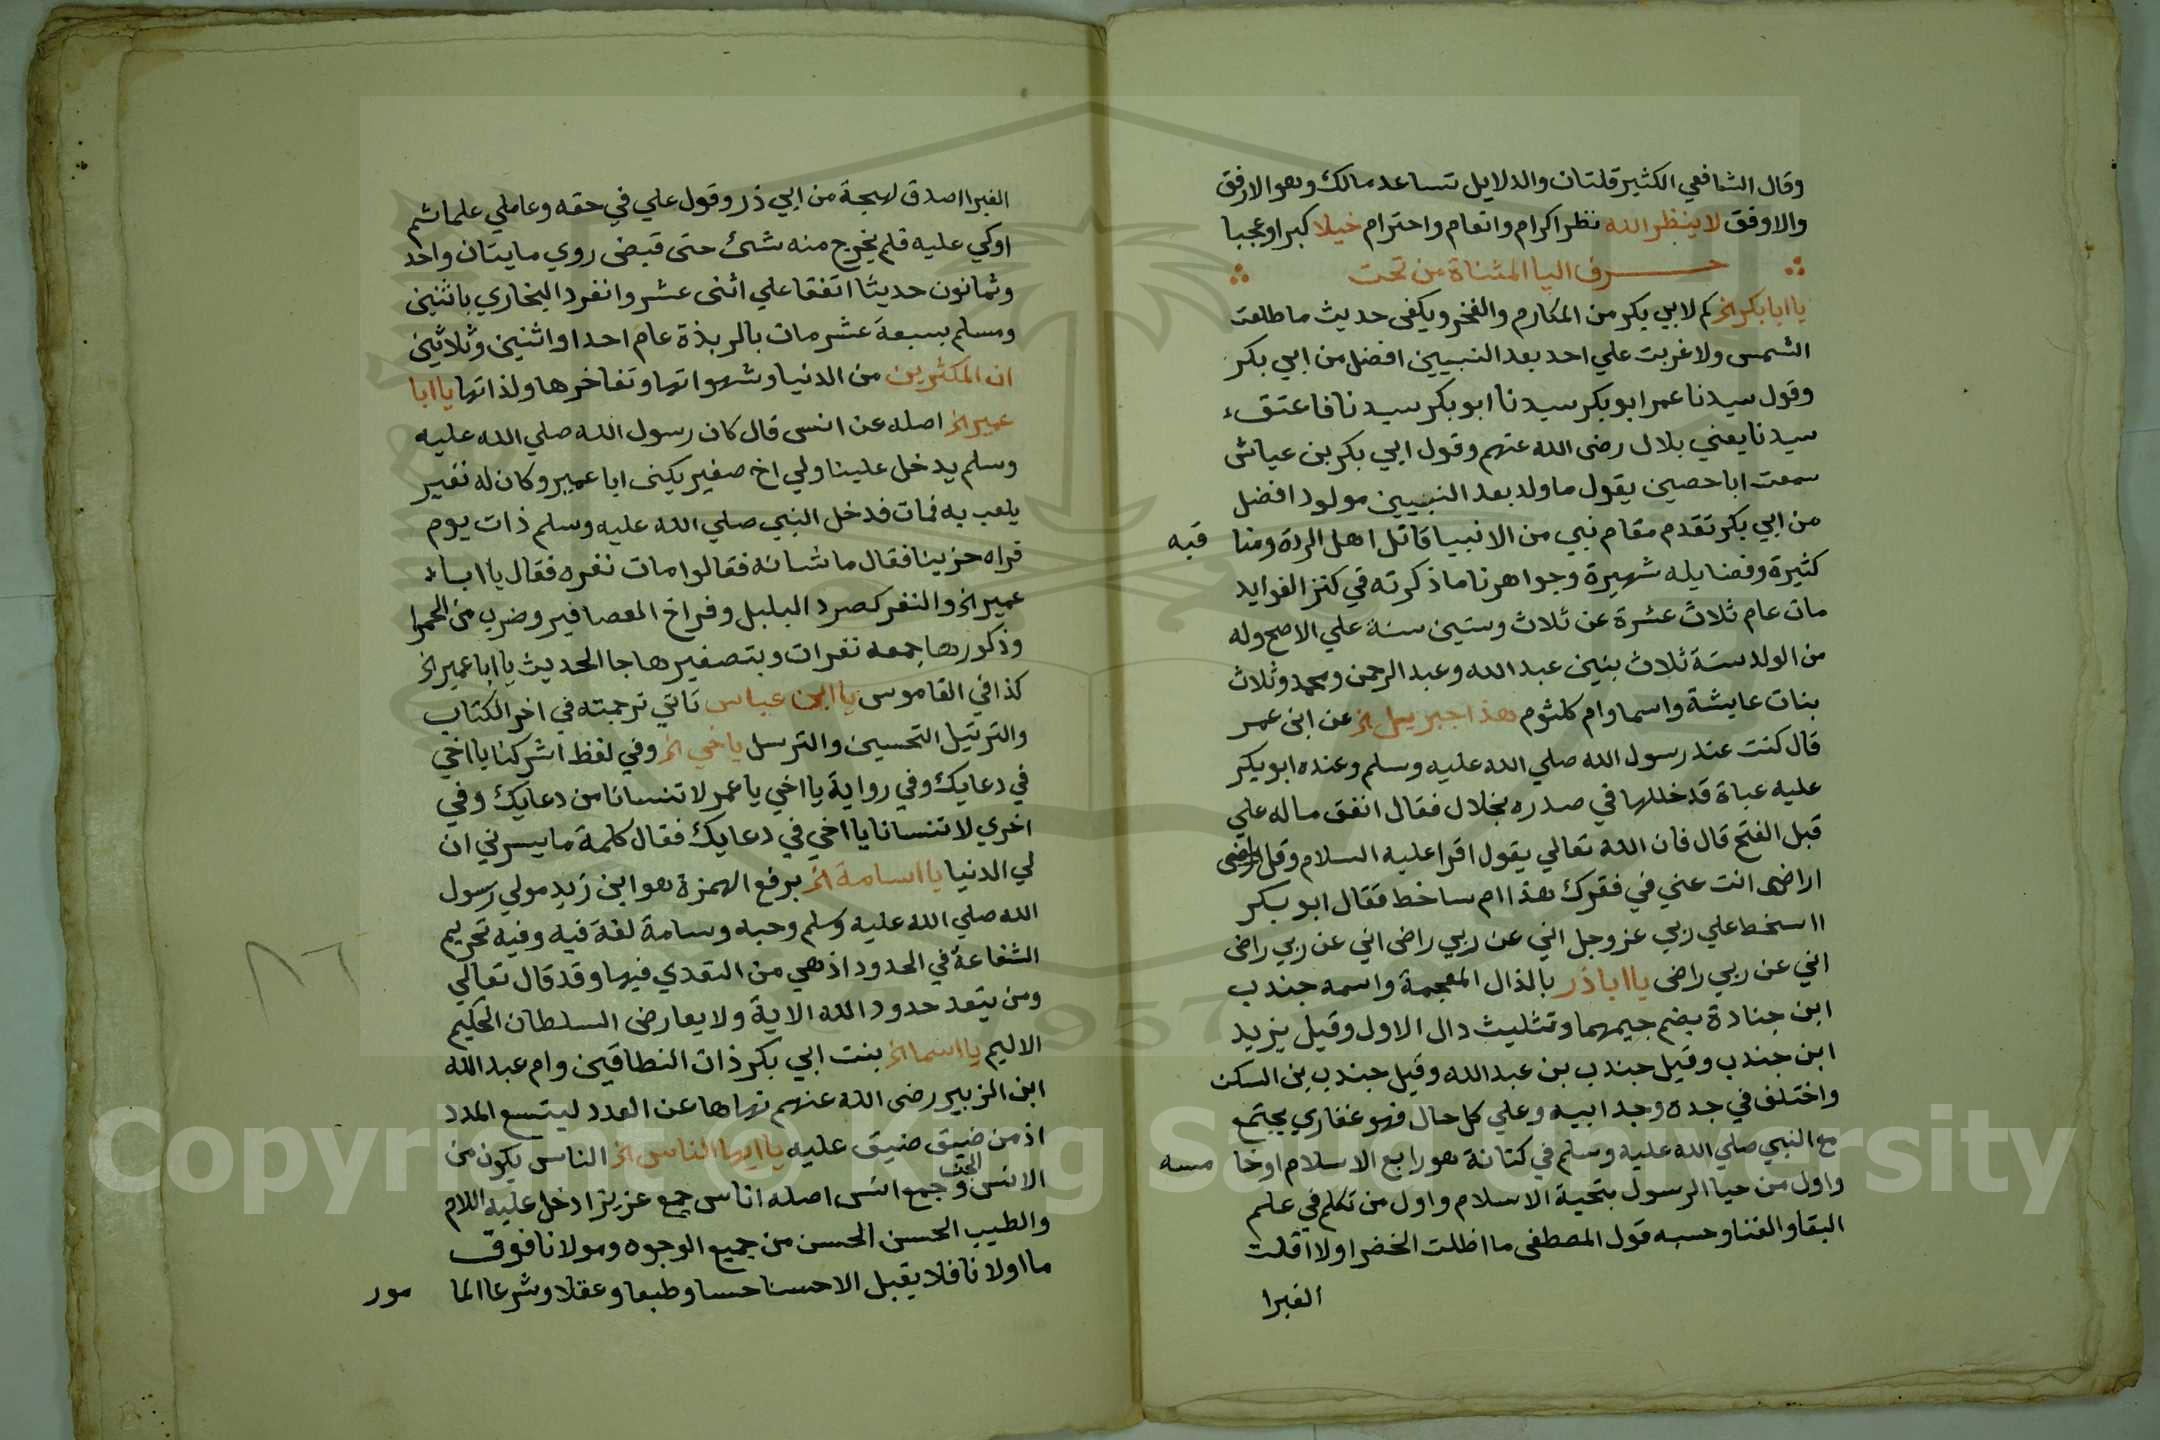 وقال الشافعي الكثير قلتان والدلايل تساعد مالك وهو الارفق
والاوفق لا ينظر الله نظر اكرام وانعام واحترام خيلا كبرا وعجبا
حرف اليا المثناة من تحت
يا ابا بكر الخ كم لابي بكر من المكارم والفخر ويكفي حديث ما طلعت
الشمس ولا غربت علي احد بعد النبيين افضل من ابي بكر
وقول سيدنا عمر ابو بكر سيدنا ابو بكر سيدنا فاعتق
سيدنا يعني بلال رضى الله عنهم وقول ابي بكر بن عياش
سمعت ابا حصين يقول ما ولد بعد النبيين مولود افضل
من ابي بكر تقدم مقام نبي من الانبيا قاتل اهل الردة ومنا قبه
كثيرة وفضايله شهيرة وجواهرنا ما ذكرته في كنز الفوايد
مات عام ثلاث عشرة عن ثلاث وستين سنة علي الاصح وله
من الولد ستة ثلاث بنين عبد الله وعبد الرحمن ومحمد وثلاث
بنات عايشة واسما وام كلثوم هذا جبريل الخ عن ابن عمر
قال كنت عند رسول الله صلي الله عليه وسلم وعنده ابو بكر
عليه عباة قد خللها في صدره بخلال فقال انفق ماله علي
قبل الفتح قال فان الله تعالي يقول اقرا عليه السلام وقل له
اراضى انت عني في فقرك هذا ام ساخط فقال ابو بكر
ااسخط علي ربي عز وجل اني عن ربي راضى اني عن ربي راضى
اني عن ربي راضى يا ابا ذر بالذال المعجمة واسمه جندب
ابن جنادة بضم جيمهما وتثليث دال الاول وقيل يزيد
ابن جندب وقيل جندب بن عبد الله وقيل جندب بن السكن
واختلف في جده وجد ابيه وعلي كل حال فهو غفاري يجتمع
مع النبي صلي الله عليه وسلم في كنانة هو رابع الاسلام او خا مسه
واول من حيا الرسول بتحية الاسلام واول من تكلم في علم
البقا والفنا وحسبه قول المصطفى ما اظلت الخضرا ولا اقلت
الغبرا
الغبرا اصدق لهجة من ابي ذر وقول علي في حقه وعا ملي علما ثم
اوكي عليه فلم يخرج منه شئ حتى قبض روي مايتان واحد
وثمانون حديثا اتفقا علي اثنى عشر وانفرد البخاري باثنين
ومسلم بسبعة عشر مات بالربذة عام احد او اثنين وثلاثين
ان المكثرين من الدنيا وشهواتها وتفاخرها ولذاتها يا ابا
عمير الخ اصله عن انس قال كان رسول الله صلي الله عليه
وسلم يدخل علينا ولي اخ صغير يكنى ابا عمير وكان له نغير
يلعب به فمات فدخل النبي صلي الله عليه وسلم ذات يوم
فراه حزينا فقال ما شانه فقالوا مات نغره فقال يا ابا
عمير الخ والنغر كصرد البلبل وفراخ العصافير وضرب من الحمر
وذكورها جمعه نغرات وبتصغيرها جا الحديث يا ابا عمير الخ
كذا في القاموس يا ابن عباس تاتي ترجمته في اخر الكتاب
والترتيل التحسين والترسل يا خي الخ وفي لفظ اشركنا يا اخي
في دعايك وفي رواية يا اخي يا عمر لا تنسانا من دعايك وفي
اخري لا تنسانا يا اخي في دعايك فقال كلمة ما يسرني ان
لي الدنيا يا اسامة الخ برفع الهمزة هو ابن زيد مولي رسول
الله صلي الله عليه وسلم وحبه وسامة لغة فيه وفيه تحريم
الشفاعة في الحدود اذ هي من التعدي فيها وقد قال تعالي
ومن يتعد حدود الله الاية ولا يعارض السلطان الحكيم
الاليم يا اسما الخ بنت ابي بكر ذات النطاقين وام عبد الله
ابن الزبير رضى الله عنهم نهاها عن العدد ليتسع المدد
اذ من ضيق ضيق عليه يا ايها الناس الخ الناس يكون من
الانس والجن وجمع انس اصله اناس جمع عزيز ادخل عليه اللام
والطيب الحسن الحسن من جميع الوجوه ومولانا فوق
ما اولانا فلا يقبل الا حسنا حسا وطبعا وعقلا وشرعا الما مور
٨٦
Copyright © King Saud University
1957